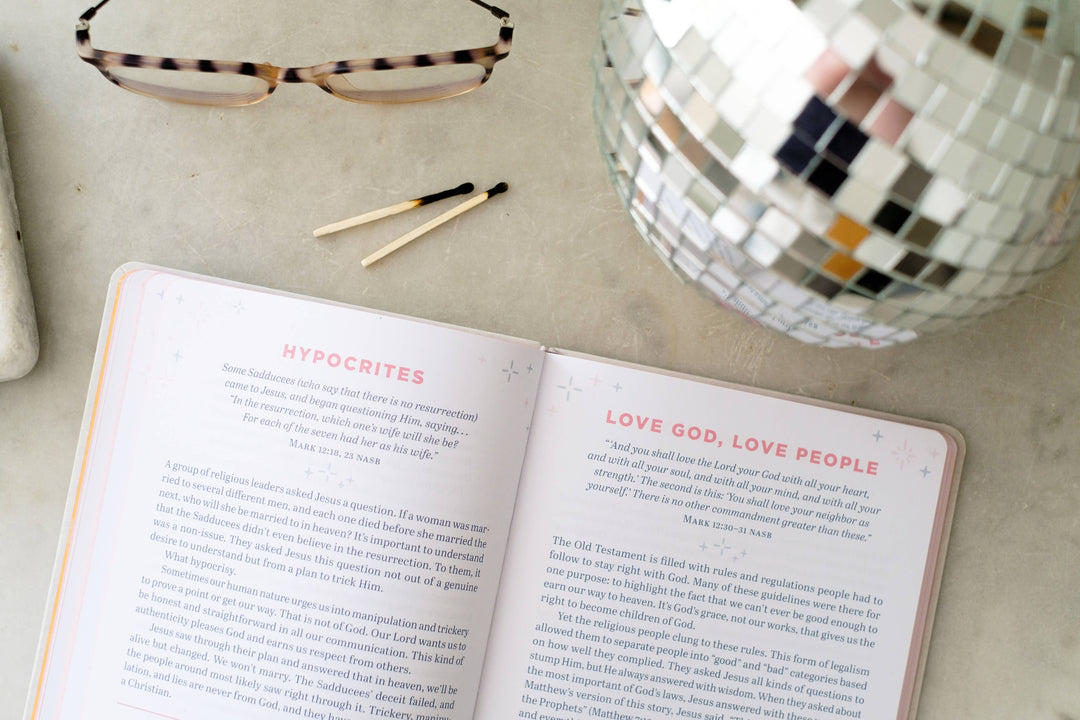 HYPOCRITES
Some Sadducees (who say that there is no resurrection)
came to Jesus, and began questioning Him, saying...
"In the resurrection, which one's wife will she be?
For each of the seven had her as his wife."
MARK 12:18, 23 NASB
A group of religious leaders asked Jesus a question. If a woman was mar-
ried to several different men, and each one died before she married the
next, who will she be married to in heaven? It's important to understand
that the Sadducees didn't even believe in the resurrection. To them, it
was a non-issue. They asked Jesus this question not out of a genuine
desire to understand but from a plan to trick Him.
What hypocrisy.
Sometimes our human nature urges us into manipulation and trickery
to prove a point or get our way. That is not of God. Our Lord wants us to
be honest and straightforward in all our communication. This kind of
authenticity pleases God and earns us respect from others.
Jesus saw through their plan and answered that in heaven, we'll be
alive but changed. We won't marry. The Sadducees' deceit failed, and
the people around most likely saw right through it. Trickery, manipu-
lation, and lies are never from God, and they have
a Christian.
LOVE GOD, LOVE PEOPLE
"'And you shall love the Lord your God with all your heart,
and with all your soul, and with all your mind, and with all your
strength.' The second is this: 'You shall love your neighbor as
yourself.' There is no other commandment greater than these."
MARK 12:30–31 NASB
The Old Testament is filled with rules and regulations people had to
follow to stay right with God. Many of these guidelines were there for
one purpose: to highlight the fact that we can't ever be good enough to
earn our way to heaven. It's God's grace, not our works, that gives us the
right to become children of God.
Yet the religious people clung to these rules. This form of legalism
allowed them to separate people into "good" and "bad" categories based
on how well they complied. They asked Jesus all kinds of questions to
stump Him, but He always answered with wisdom. When they asked about
the most important of God's laws, Jesus answered with these
Matthew's version of this story, Jesus said,
the Prophets" (Matthew
and